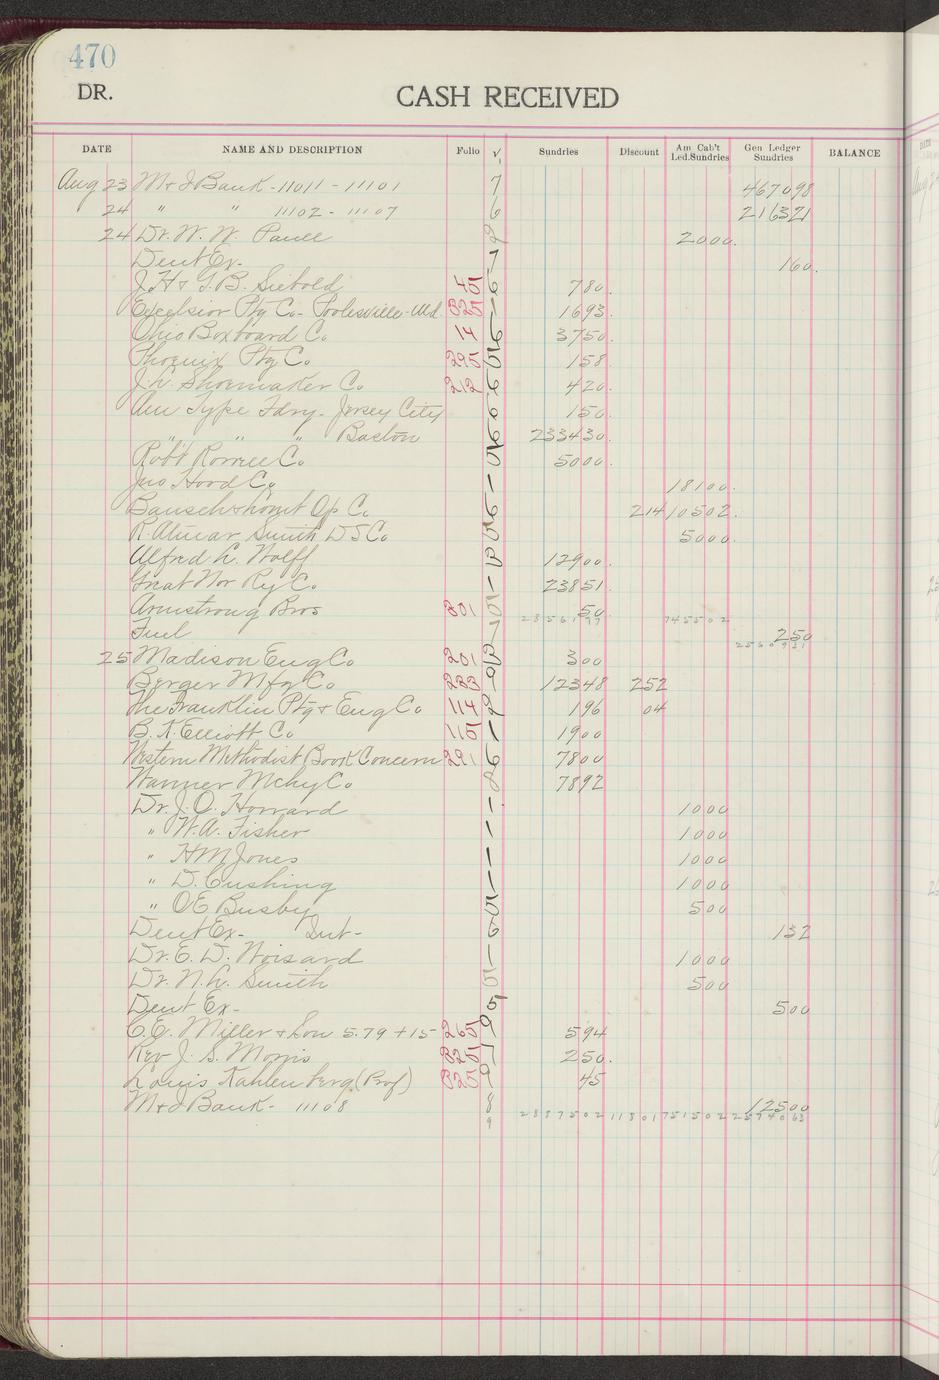 470
DR.
CASH RECEIVED
DATE NAME AND DESCRIPTION Folio √ Sundries Discount Am Cab't Led.Sundries Gen Ledger Sundries BALANCE
Aug 23 M & I Bank - 11011 - 11101 7 467098
24 " " 11102 - 11107 6 216321
24 Dr. W. W. 2000.
Dent Ex. 7 160.
J. H & G. B. Siebold 45 6 780.
Excelsior Ptg Co - Poolesville - Md. 325 1693.
Ohio Boxboard Co 14 6 3750.
Phoenix Ptg Co 295 5 158.
J. L. Shoemaker Co 212 6 420.
Am Type Fdry - Jersey City 6 150.
" " " Boston 6 233430.
Robt Co 5 5000.
Jno Hood Co 1 18100.
Bausch & Lomb Op Co 6 214 10502.
R. Smith D S Co 5 5000.
Alfred L. Wolff 2 12900.
Great Nor Ry Co 1 23851.
Armstrong Bros 301 5 50.
2856197 745502
Fuel 7 250
25 Madison Eng Co 201 2 300
Berger Mfg Co 283 9 12348 252
The Franklin Ptg & Eng Co 114 2 196 04
B. K. Elliott Co 115 1 1900
Western Methodist Book Concern 291 6 7800
Wanner Mchy Co 8 7892
Dr. J. O. Howard 1 1000
" W. A. Fisher 1 1000
" H M Jones 1 1000
" D. Cushing 1 1000
" O E Busby 5 500
Dent Ex - Int - 6 132
Dr. E. D. Woisard 1 1000
Dr. N. L. Smith 5 500
Dent Ex - 5 500
C. E. Miller & Son 5.79 + 15 265 9 594
Rev J. S. Morris 325 7 250.
Louis Kahlenberg (Prof) 325 9 45
M & I Bank - 11108 8 12500
9 2887502 11801 751502 2574063